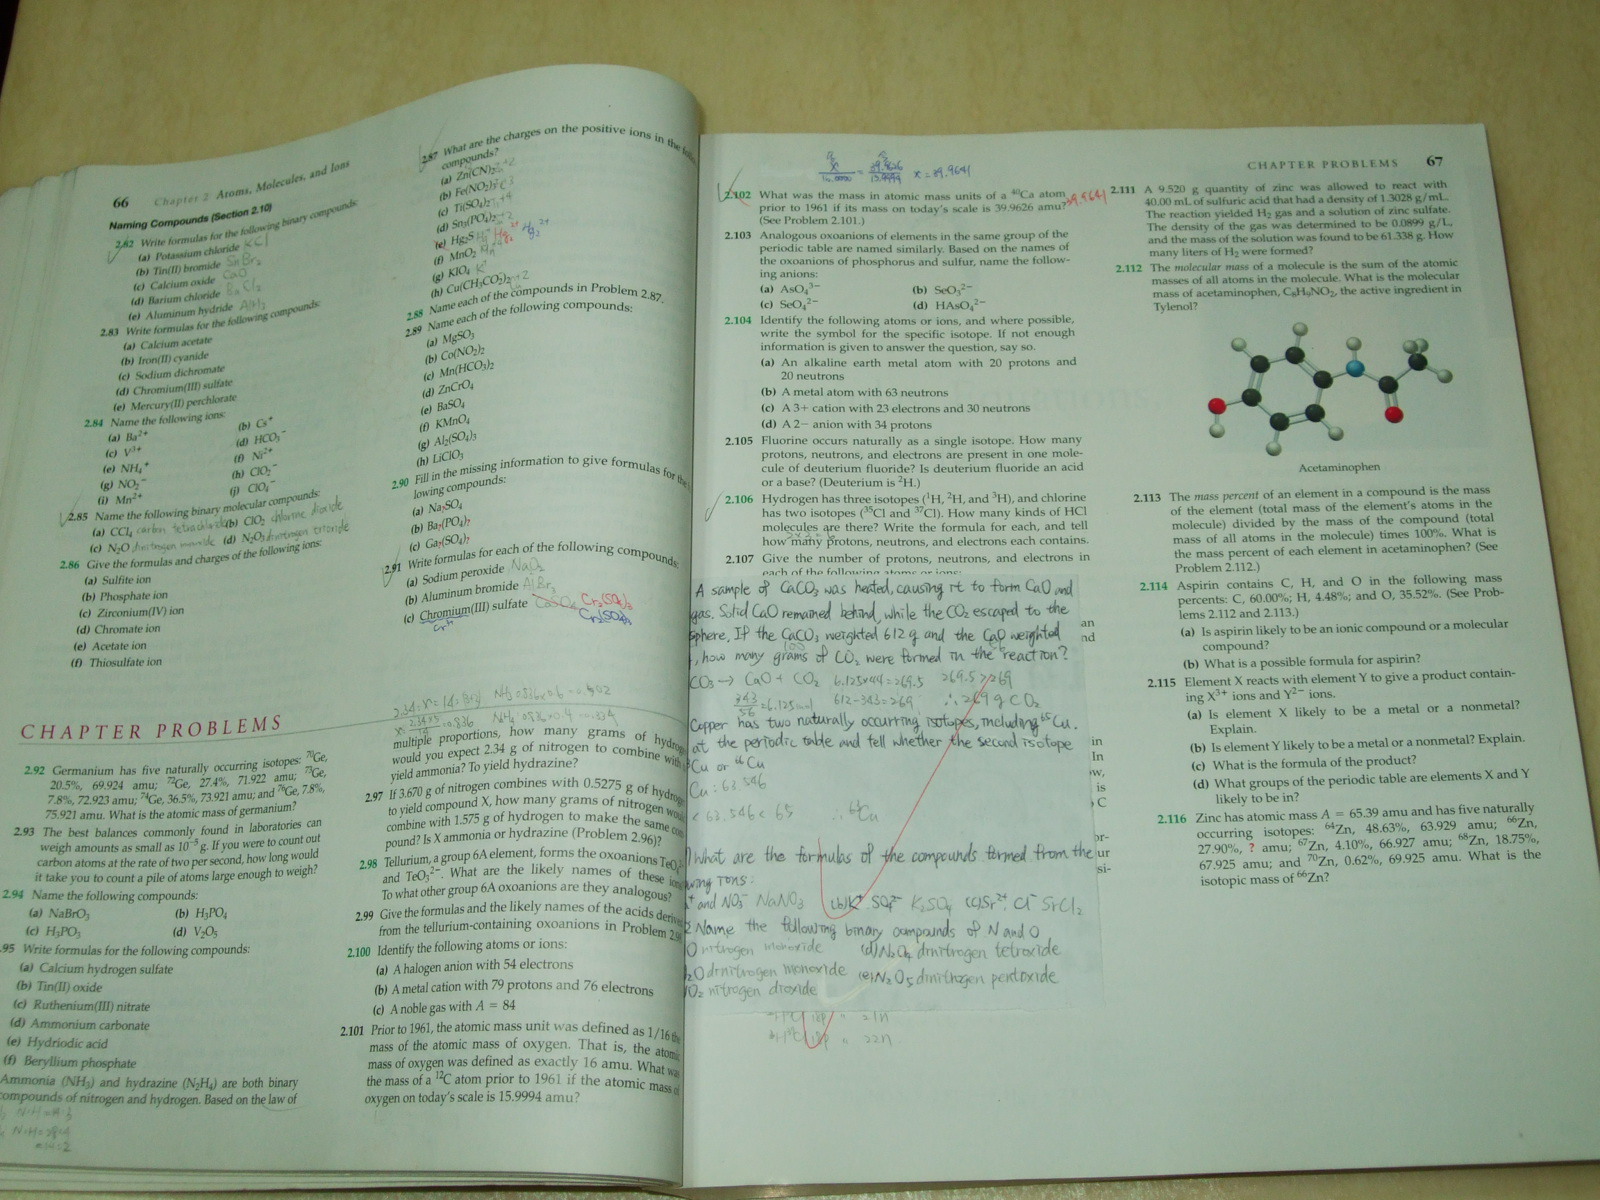 66 Chapter 2 Atoms, Molecules, and Ions
Naming Compounds (Section 2.10)
2.82 Write formulas for the following binary compounds:
(a) Potassium chloride KCl
(b) Tin(II) bromide SnBr₂
(c) Calcium oxide CaO
(d) Barium chloride BaCl₂
(e) Aluminum hydride AlH₃
2.83 Write formulas for the following compounds:
(a) Calcium acetate
(b) Iron(II) cyanide
(c) Sodium dichromate
(d) Chromium(III) sulfate
(e) Mercury(II) perchlorate
2.84 Name the following ions:
(a) Ba²⁺ (b) Cs⁺
(c) V³⁺ (d) HCO₃⁻
(e) NH₄⁺ (f) Ni²⁺
(g) NO₂⁻ (h) ClO₂⁻
(i) Mn²⁺ (j) ClO₄⁻
2.85 Name the following binary molecular compounds:
(a) CCl₄ carbon tetrachloride (b) ClO₂ chlorine dioxide
(c) N₂O dinitrogen monoxide (d) N₂O₃ dinitrogen trioxide
2.86 Give the formulas and charges of the following ions:
(a) Sulfite ion
(b) Phosphate ion
(c) Zirconium(IV) ion
(d) Chromate ion
(e) Acetate ion
(f) Thiosulfate ion
2.87 What are the charges on the positive ions in the
compounds?
(a) Zn(CN)₂ +2
(b) Fe(NO₂)₃
(c) Ti(SO₄)₂ +4
(d) Sn₃(PO₄)₂ +2
(e) Hg₂S Hg₂²⁺
(f) MnO₂
(g) KIO₄ K⁺
(h) Cu(CH₃CO₂)₂ +2
2.88 Name each of the compounds in Problem 2.87.
2.89 Name each of the following compounds:
(a) MgSO₃
(b) Co(NO₂)₂
(c) Mn(HCO₃)₂
(d) ZnCrO₄
(e) BaSO₄
(f) KMnO₄
(g) Al₂(SO₄)₃
(h) LiClO₃
2.90 Fill in the missing information to give formulas for the
lowing compounds:
(a) Na?SO₄
(b) Ba?(PO₄)?
(c) Ga?(SO₄)?
2.91 Write formulas for each of the following compounds:
(a) Sodium peroxide NaO₂
(b) Aluminum bromide AlBr₃
(c) Chromium(III) sulfate Cr₂(SO₄)₃
Cr₂(SO₄)₃
CHAPTER PROBLEMS
2.92 Germanium has five naturally occurring isotopes: ⁷⁰Ge,
20.5%, 69.924 amu; ⁷²Ge, 27.4%, 71.922 amu; ⁷³Ge,
7.8%, 72.923 amu; ⁷⁴Ge, 36.5%, 73.921 amu; and ⁷⁶Ge, 7.8%,
75.921 amu. What is the atomic mass of germanium?
2.93 The best balances commonly found in laboratories can
weigh amounts as small as 10⁻⁵ g. If you were to count out
carbon atoms at the rate of two per second, how long would
it take you to count a pile of atoms large enough to weigh?
2.94 Name the following compounds:
(a) NaBrO₃ (b) H₃PO₄
(c) H₃PO₃ (d) V₂O₅
.95 Write formulas for the following compounds:
(a) Calcium hydrogen sulfate
(b) Tin(II) oxide
(c) Ruthenium(III) nitrate
(d) Ammonium carbonate
(e) Hydriodic acid
(f) Beryllium phosphate
Ammonia (NH₃) and hydrazine (N₂H₄) are both binary
compounds of nitrogen and hydrogen. Based on the law of
multiple proportions, how many grams of hydrog
would you expect 2.34 g of nitrogen to combine with
yield ammonia? To yield hydrazine?
2.97 If 3.670 g of nitrogen combines with 0.5275 g of hydrog
to yield compound X, how many grams of nitrogen wou
combine with 1.575 g of hydrogen to make the same com
pound? Is X ammonia or hydrazine (Problem 2.96)?
2.98 Tellurium, a group 6A element, forms the oxoanions TeO₄²⁻
and TeO₃²⁻. What are the likely names of these ions
To what other group 6A oxoanions are they analogous?
2.99 Give the formulas and the likely names of the acids derived
from the tellurium-containing oxoanions in Problem 2.98
2.100 Identify the following atoms or ions:
(a) A halogen anion with 54 electrons
(b) A metal cation with 79 protons and 76 electrons
(c) A noble gas with A = 84
2.101 Prior to 1961, the atomic mass unit was defined as 1/16 the
mass of the atomic mass of oxygen. That is, the atomic
mass of oxygen was defined as exactly 16 amu. What was
the mass of a ¹²C atom prior to 1961 if the atomic mass of
oxygen on today's scale is 15.9994 amu?
CHAPTER PROBLEMS 67
x/16.0000 = 39.9626/15.9994 x = 39.9641
2.102 What was the mass in atomic mass units of a ⁴⁰Ca atom
prior to 1961 if its mass on today's scale is 39.9626 amu? 39.9641
(See Problem 2.101.)
2.103 Analogous oxoanions of elements in the same group of the
periodic table are named similarly. Based on the names of
the oxoanions of phosphorus and sulfur, name the follow-
ing anions:
(a) AsO₄³⁻ (b) SeO₃²⁻
(c) SeO₄²⁻ (d) HAsO₄²⁻
2.104 Identify the following atoms or ions, and where possible,
write the symbol for the specific isotope. If not enough
information is given to answer the question, say so.
(a) An alkaline earth metal atom with 20 protons and
20 neutrons
(b) A metal atom with 63 neutrons
(c) A 3+ cation with 23 electrons and 30 neutrons
(d) A 2− anion with 34 protons
2.105 Fluorine occurs naturally as a single isotope. How many
protons, neutrons, and electrons are present in one mole-
cule of deuterium fluoride? Is deuterium fluoride an acid
or a base? (Deuterium is ²H.)
2.106 Hydrogen has three isotopes (¹H, ²H, and ³H), and chlorine
has two isotopes (³⁵Cl and ³⁷Cl). How many kinds of HCl
molecules are there? Write the formula for each, and tell
how many protons, neutrons, and electrons each contains.
2.107 Give the number of protons, neutrons, and electrons in
each of the following atoms or ions:
A sample of CaCO₃ was heated, causing it to form CaO and
gas. Solid CaO remained behind, while the CO₂ escaped to the
sphere. If the CaCO₃ weighted 612 g and the CaO weighted
, how many grams of CO₂ were formed in the reaction?
CO₃ → CaO + CO₂ 6.125×44=269.5 269.5>269
343/56=6.125mol 612-343=269 ∴269 g CO₂
Copper has two naturally occurring isotopes, including ⁶⁵Cu.
at the periodic table and tell whether the second isotope
Cu or ⁶⁶Cu
Cu: 63.546
< 63.546 < 65 ∴ ⁶³Cu
What are the formulas of the compounds formed from the
wing ions:
and NO₃⁻ NaNO₃ (b)K⁺ SO₄²⁻ K₂SO₄ (c)Sr²⁺ Cl⁻ SrCl₂
2 Name the following binary compounds of N and O
O nitrogen monoxide (d)N₂O₄ dinitrogen tetroxide
₂O dinitrogen monoxide (e)N₂O₅ dinitrogen pentoxide
O₂ nitrogen dioxide
2.111 A 9.520 g quantity of zinc was allowed to react with
40.00 mL of sulfuric acid that had a density of 1.3028 g/mL.
The reaction yielded H₂ gas and a solution of zinc sulfate.
The density of the gas was determined to be 0.0899 g/L,
and the mass of the solution was found to be 61.338 g. How
many liters of H₂ were formed?
2.112 The molecular mass of a molecule is the sum of the atomic
masses of all atoms in the molecule. What is the molecular
mass of acetaminophen, C₈H₉NO₂, the active ingredient in
Tylenol?
Acetaminophen
2.113 The mass percent of an element in a compound is the mass
of the element (total mass of the element's atoms in the
molecule) divided by the mass of the compound (total
mass of all atoms in the molecule) times 100%. What is
the mass percent of each element in acetaminophen? (See
Problem 2.112.)
2.114 Aspirin contains C, H, and O in the following mass
percents: C, 60.00%; H, 4.48%; and O, 35.52%. (See Prob-
lems 2.112 and 2.113.)
(a) Is aspirin likely to be an ionic compound or a molecular
compound?
(b) What is a possible formula for aspirin?
2.115 Element X reacts with element Y to give a product contain-
ing X³⁺ ions and Y²⁻ ions.
(a) Is element X likely to be a metal or a nonmetal?
Explain.
(b) Is element Y likely to be a metal or a nonmetal? Explain.
(c) What is the formula of the product?
(d) What groups of the periodic table are elements X and Y
likely to be in?
2.116 Zinc has atomic mass A = 65.39 amu and has five naturally
occurring isotopes: ⁶⁴Zn, 48.63%, 63.929 amu; ⁶⁶Zn,
27.90%, ? amu; ⁶⁷Zn, 4.10%, 66.927 amu; ⁶⁸Zn, 18.75%,
67.925 amu; and ⁷⁰Zn, 0.62%, 69.925 amu. What is the
isotopic mass of ⁶⁶Zn?